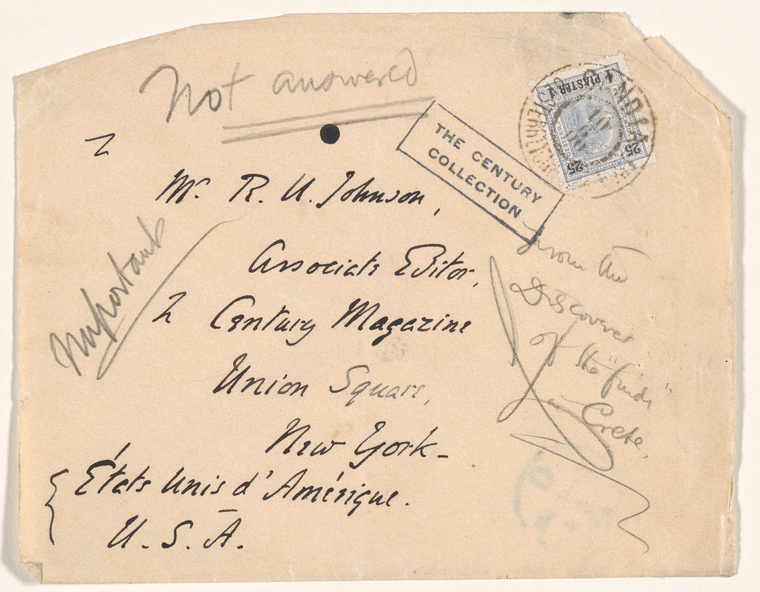 Not answered
THE CENTURY
COLLECTION
4 PIASTER 4
25 25
Mr. R. U. Johnson,
Associate Editor,
Century Magazine
Union Square,
New York–
États Unis d'Amérique.
U.S.A.
Important
from the
Discoverer
of the finds
in Crete.